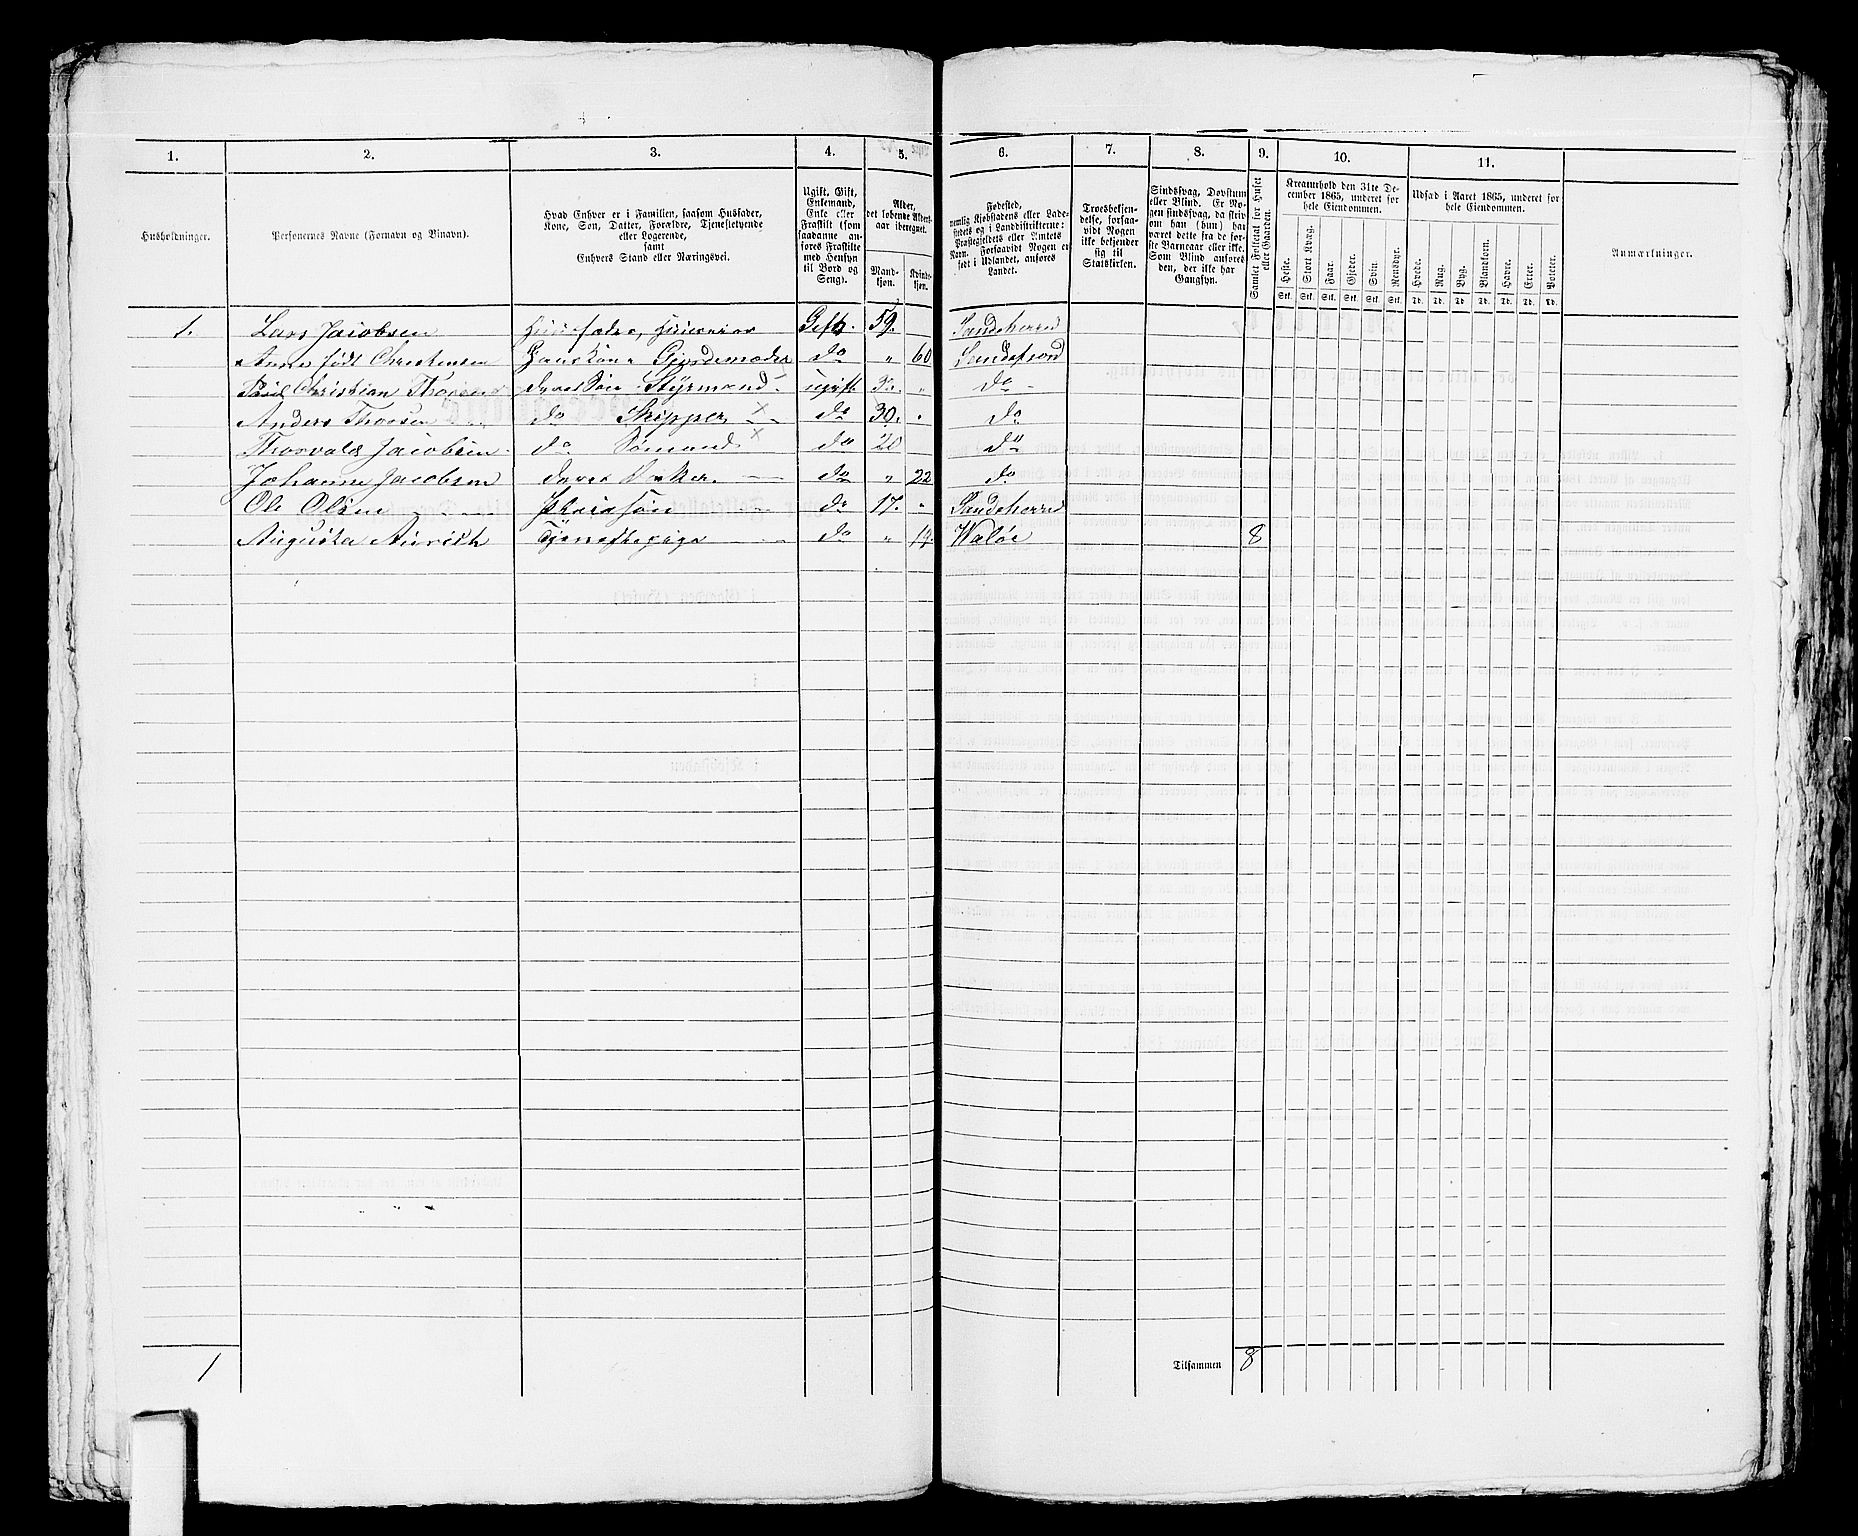 1. 2. 3. 4. 5. 6. 7. 8. 9. 10. 11.
Husholdninger.
Personernes Navne (Fornavn og Binavn).
Hvad Enhver er i Familien, saasom Husfader,
Kone, Søn, Datter, Forældre, Tjenestetyende
eller Logerende,
samt
Enhvers Stand eller Næringsvei.
Ugift, Gift,
Enkemand,
Enke eller
Fraskilt (som
saadanne an-
føres Fraskilte
med Hensyn
til Bord og
Seng).
Alder,
det løbende Alders-
aar iberegnet.
Mand-
kjøn.
Kvinde-
kjøn.
Fødested,
nemlig Kjøbstadens eller Lade-
stedets og i Landdistrikterne:
Præstegjeldets eller Amtets
Navn. Forsaavidt Nogen er
født i Udlandet, anføres
Landet.
Troesbekjen-
delse, forsaa-
vidt Nogen
ikke bekjender
sig til
Statskirken.
Sindssvag, Døvstum
eller Blind. Er No-
gen sindssvag, da skriv
om han (hun) har
været dette fra de før-
ste Barneaar eller ikke.
Som Blind anføres
den, der ikke har
Gangsyn.
Samlet Folketal for Huset
eller Gaarden.
Kreaturhold den 31te De-
cember 1865, underet for
hele Eiendommen.
Heste. Stort Kvæg. Faar. Gjeder. Svin. Rensdyr.
Stk. Stk. Stk. Stk. Stk. Stk.
Udsæd i Aaret 1865, underet for
hele Eiendommen.
Hvede. Rug. Byg. Blandkorn. Havre. Erter. Poteter.
Td. Td. Td. Td. Td. Td. Td.
Anmærkninger.
1. Lars Jacobsen Huusfader, Huuseier Gift. 59. Sandeherred
Anne født Christensen Hans Kone Gjordemoder do " 60 Sandefjord
Christian Thorsen deres Søn Styrmand ugift " do
Anders Thorsen do Skipper × do 30. " do
Thorvald Jacobsen do Sømand × do 20 do
Johanne Jacobsen deres Datter do " 22 do
Ole Olsen Pleiesøn do 17. " Sandeherred
Augusta Tjenestepige do " Waløe 8
1 Tilsammen 8